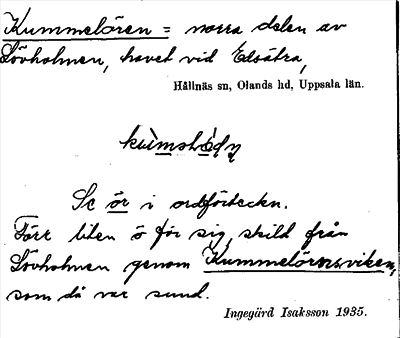 Kummelören = norra delen av
Lövholmen, havet vid Edsätra,
Hållnäs sn, Olands hd, Uppsala län.
Se ör i ordförteckn.
Förr liten ö för sig, skild från
Lövholmen genom Kummelörnsviken,
som då var sund.
Ingegärd Isaksson 1935.